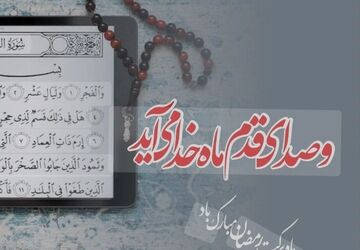 سُورَةُ
بِسْمِ
وَالْفَجْرِ ۝١ وَلَيَالٍ عَشْرٍ ۝٢
هَلْ فِي ذَٰلِكَ قَسَمٌ لِّذِي حِجْرٍ
إِرَمَ ذَاتِ الْعِمَادِ ۝٧ الَّتِي
وَثَمُودَ الَّذِينَ جَابُوا الصَّخْرَ بِالْوَادِ
الَّذِينَ طَغَوْا فِي الْبِلَادِ ۝١١
و صدای قدم ماه خدا می آید
رمضان مبارک باد